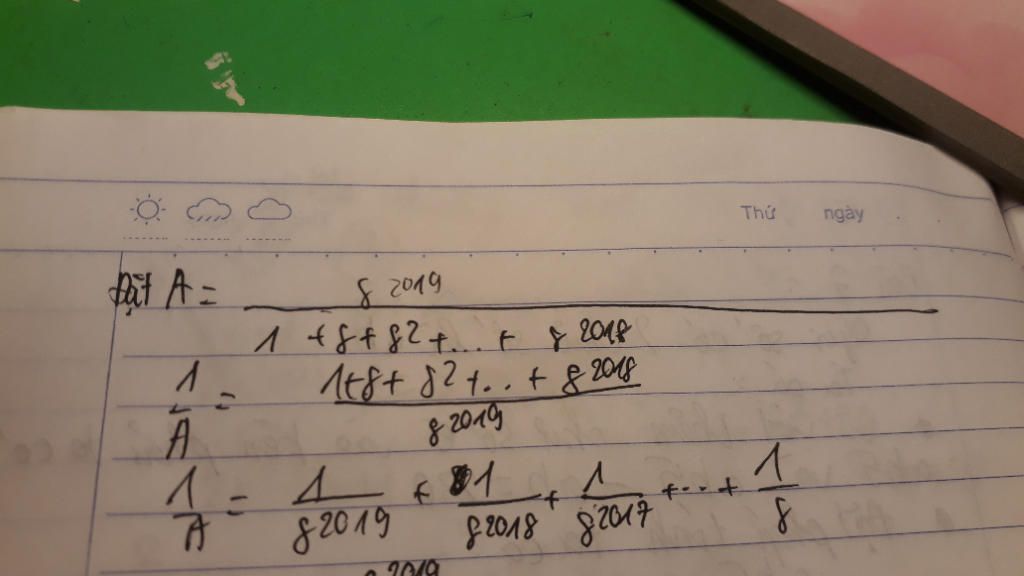 Thứ ngày
Đặt A = 8^2019
1 + 8 + 8^2 + ... + 8^2018
1/A = (1+8+ 8^2 + .. + 8^2018)/8^2019
1/A = 1/8^2019 + 1/8^2018 + 1/8^2017 + ... + 1/8
8^2019